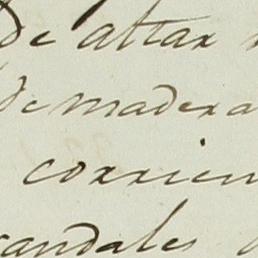 de altar
de madera
corrien
candales